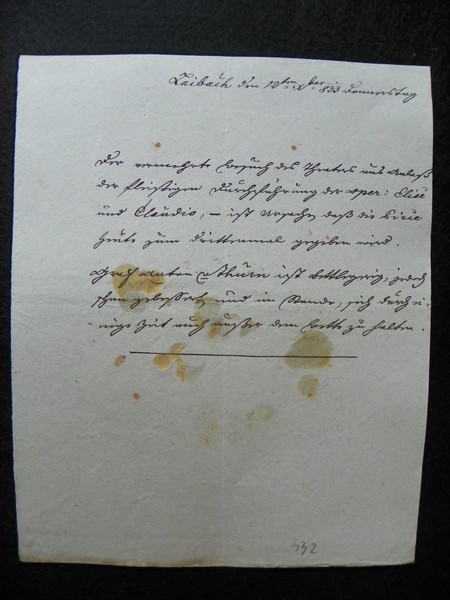 Laibach den 19ten Xber 833 Donnerstag
Der vermehrte Besuch des Theaters aus Anlaß
der fleißigen Durchführung der Oper: Elise
und Claudio, – ist Ursache, daß die
heute zum drittenmal gegeben wird.
Graf Anton v Thurn ist bettlegerig, jedoch
schon gebessert und im Stande, sich durch ei-
nige Zeit auch außer dem Bette zu halten.
332